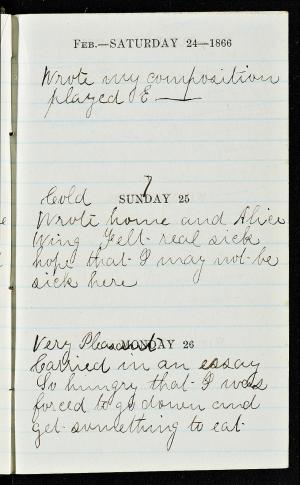 Feb.—SATURDAY 24—1866
Wrote my composition
played E——
Cold SUNDAY 25
Wrote home and Alice
Wing Felt real sick
hope that I may not be
sick here
Very Pleasant MONDAY 26
Carried in an essay
So hungry that I was
forced to go down and
get something to eat